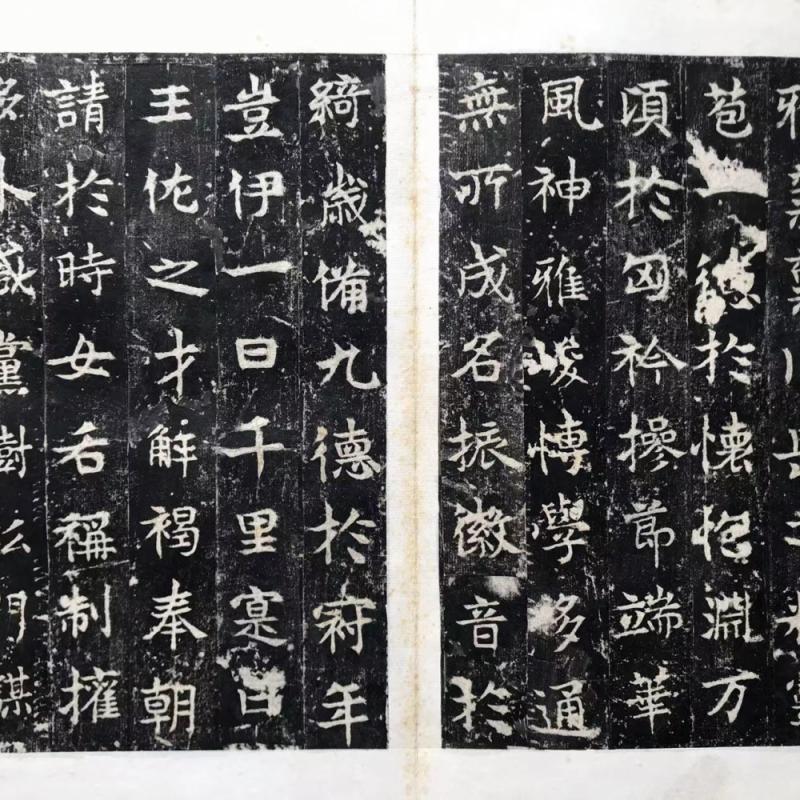 苞一德於懷抱淵万
頃於匈衿操節端華
風神雅峻博學多通
無所成名振徽音於
綺歲備九德於年
豈伊一日千里寔曰
王佐之才解褐奉朝
請於時女后稱制權
移外戚黨樹私門謀